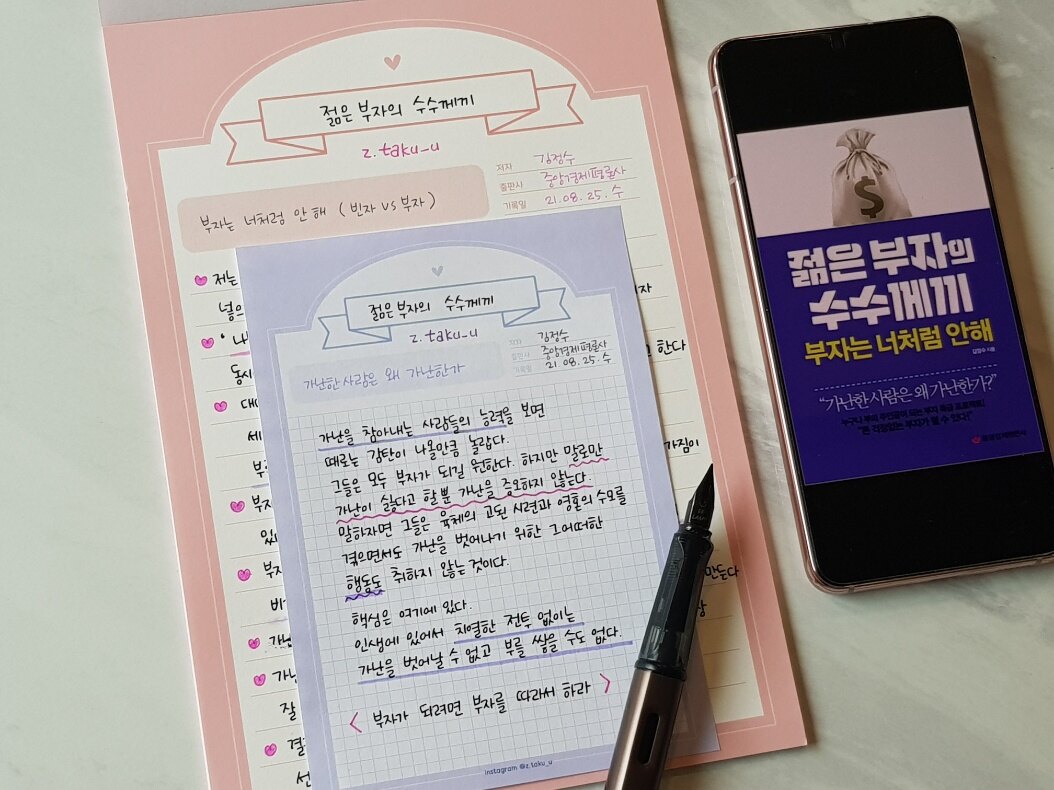 젊은 부자의 수수께끼
z.taku_u
저자 김정수
출판사 중앙경제평론사
기록일 21.08.25.수
부자는 너처럼 안 해 (빈자 vs 부자)
저는
넣은
' 나
동시
한다
대
세
가짐이
부
부자
있
부자
만든다
비
가난
가난
잘
결
선
젊은 부자의 수수께끼
z.taku_u
저자 김정수
출판사 중앙경제평론사
기록일 21.08.25.수
가난한 사람은 왜 가난한가
가난을 참아내는 사람들의 능력을 보면
때로는 감탄이 나올만큼 놀랍다.
그들은 모두 부자가 되길 원한다. 하지만 말로만
가난이 싫다고 할 뿐 가난을 증오하지 않는다.
말하자면 그들은 육체의 고된 시련과 영혼의 수모를
겪으면서도 가난을 벗어나기 위한 그어떠한
행동도 취하지 않는 것이다.
핵심은 여기에 있다.
인생에 있어서 치열한 전투 없이는
가난을 벗어날 수 없고 부를 쌓을 수도 없다.
< 부자가 되려면 부자를 따라서 하라 >
instagram @z.taku_u
$
젊은 부자의
수수께끼
부자는 너처럼 안해
김정수 지음
"가난한 사람은 왜 가난한가?"
누구나 부의 주인공이 되는 부자 특급 프로젝트!
"돈 걱정없는 부자가 될 수 있다!"
중앙경제평론사